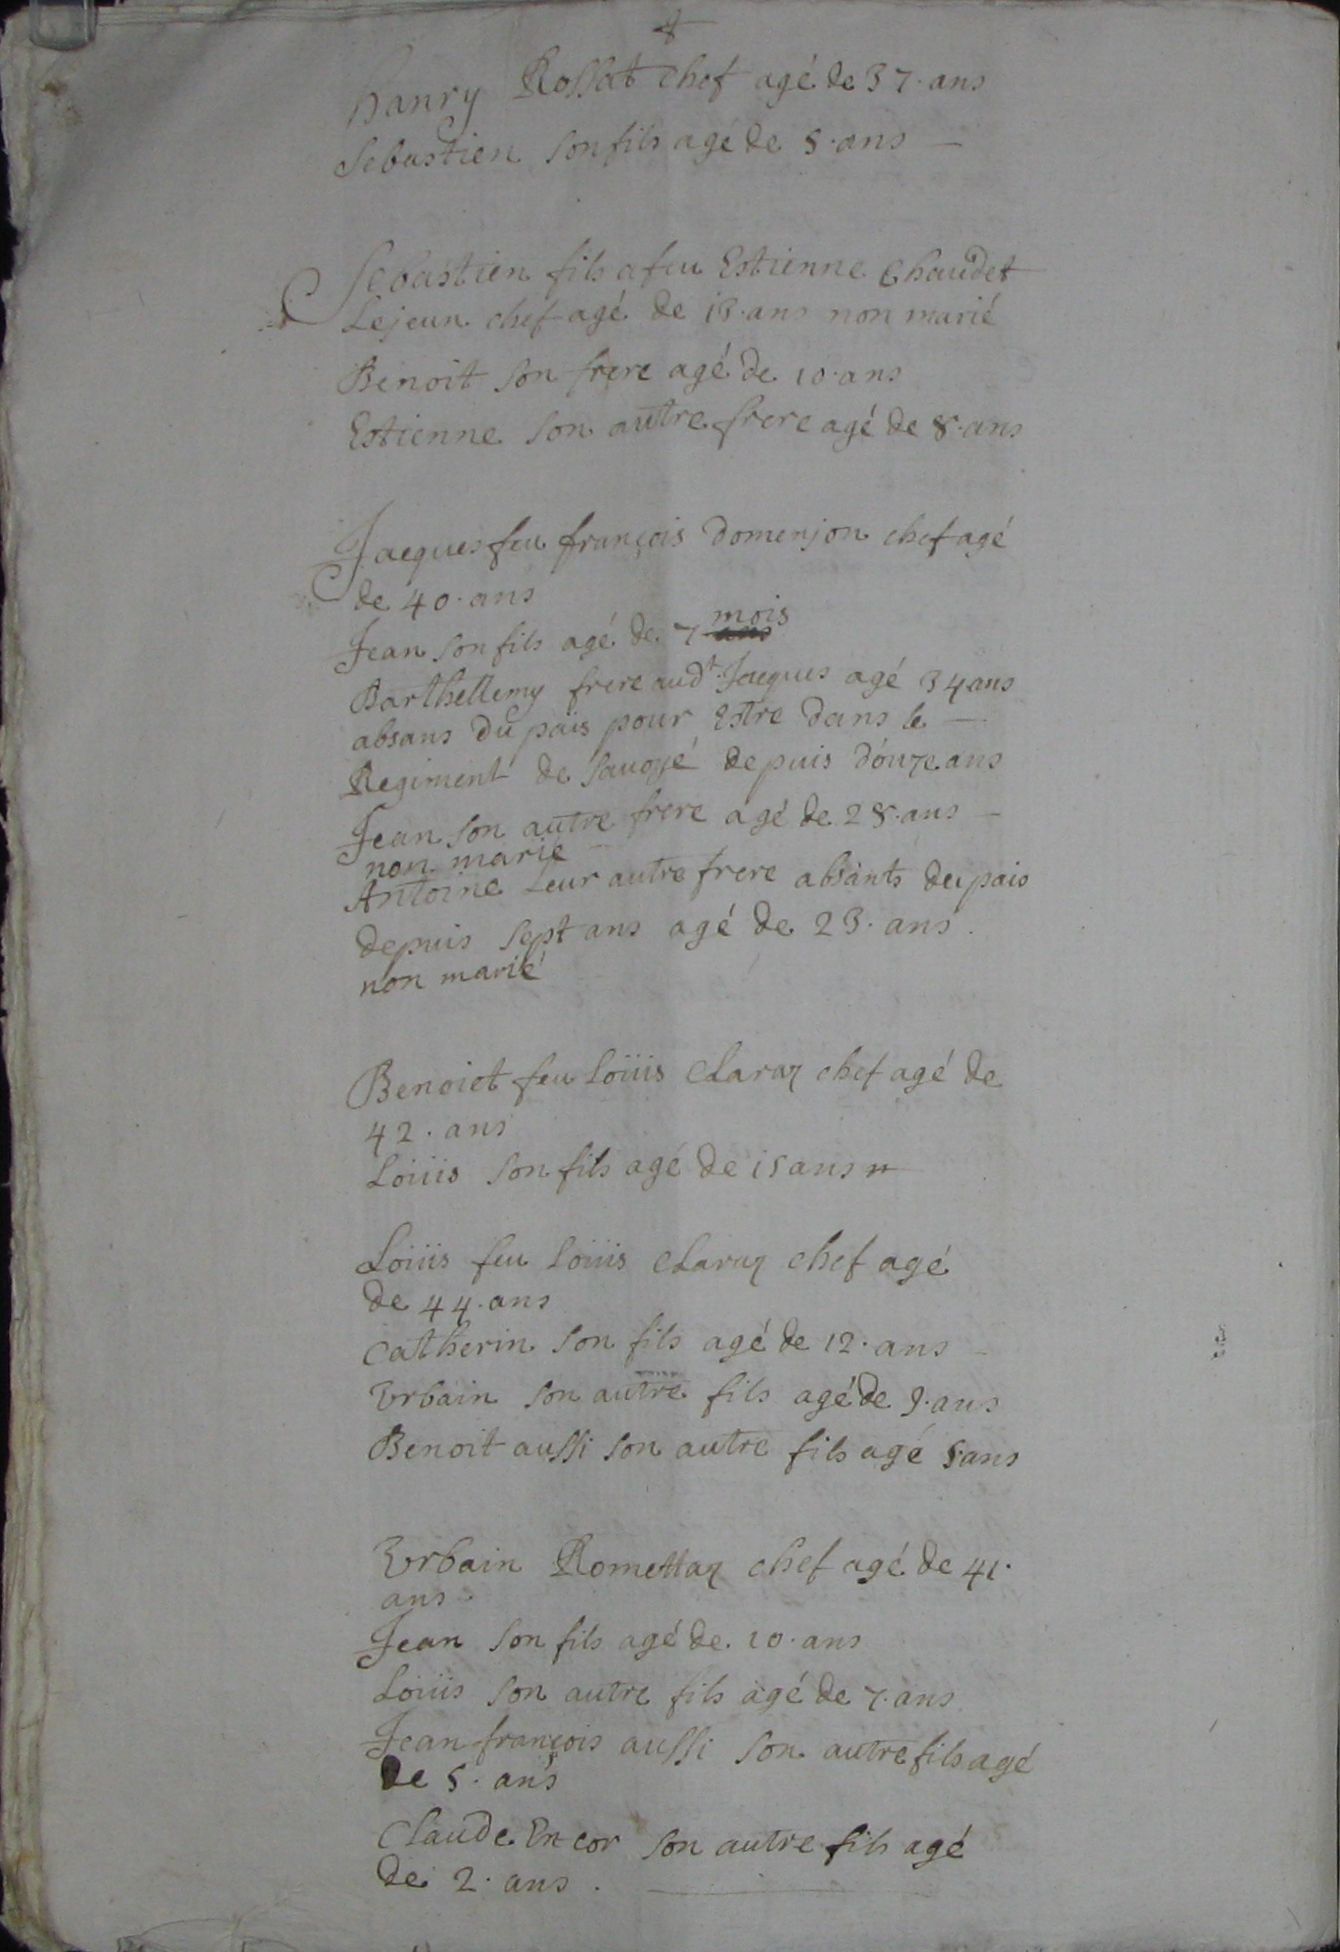 hanry Rossat chef agé de 37. ans
Sebastien son fils agé de 5. ans
Sebastien fils a feu Estienne Chaudet
Lejeun chef agé de 18. ans non marié
Benoit son frere agé de 10. ans
Estienne son autre frere agé de 8. ans
Jacques feu françois Domenjon chef agé
de 40. ans
Jean son fils agé de 7 mois
Barthellemy frere audt. Jaques agé 34 ans
absans du païs pour Estre dans le
Regiment de Savoyé depuis douze ans
Jean son autre frere agé de 28. ans
non marié
Antoine Leur autre frere absants du pais
depuis sept ans agé de 23. ans.
non marié
Benoict feu Loüis Claraz chef agé de
42. ans
Loüis son fils agé de 15 ans
Loüis feu Loüis Claraz chef agé
de 44. ans
Catherin son fils agé de 12. ans
Vrbain son autre fils agé de 9. ans
Benoit aussi son autre fils agé 5. ans
Vrbain Romettaz chef agé de 41.
ans.
Jean son fils agé de 10. ans
Loüis son autre fils agé de 7. ans
Jean françois aussi son autre fils agé
de 5. ans
Claude Encor son autre fils agé
de 2. ans.